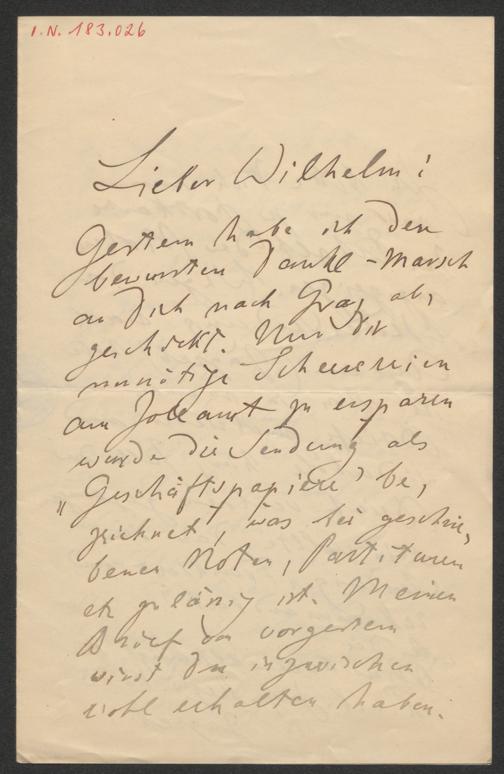 I.N. 183.026
Lieber Wilhelm!
Gestern habe ich den
bewussten Dankl-Marsch
an Dich nach Graz ab,
geschickt. Um Dir
unnötige Scherereien
am Zollamt zu ersparen
wurde die Sendung als
„Geschäftspapiere" be,
zeichnet, was bei geschrie,
benen Noten, Partituren
etc zulässig ist. Meinen
Brief von vorgestern
wirst du inzwischen
wohl erhalten haben.